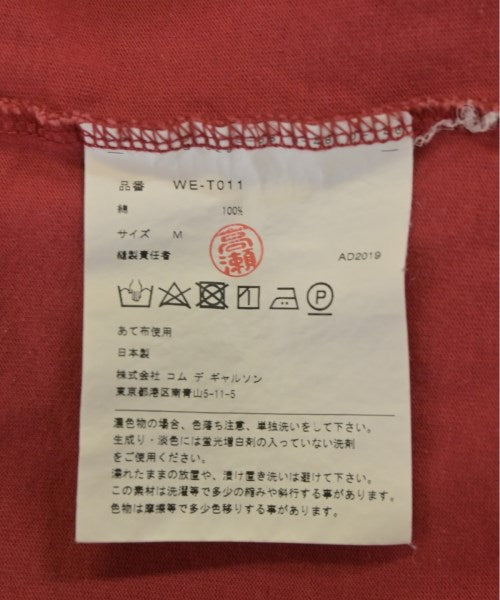 品番 WE-T011
綿 100%
サイズ M
縫製責任者 高瀬 AD2019
P
あて布使用
日本製
株式会社 コム デ ギャルソン
東京都港区南青山5-11-5
濃色物の場合、色落ち注意、単独洗いをして下さい。
生成り・淡色には蛍光増白剤の入っていない洗剤
をご使用ください。
濡れたままの放置や、漬け置き洗いは避けて下さい。
この素材は洗濯等で多少の縮みや斜行する事があります。
色物は摩擦等で多少色移りする事があります。